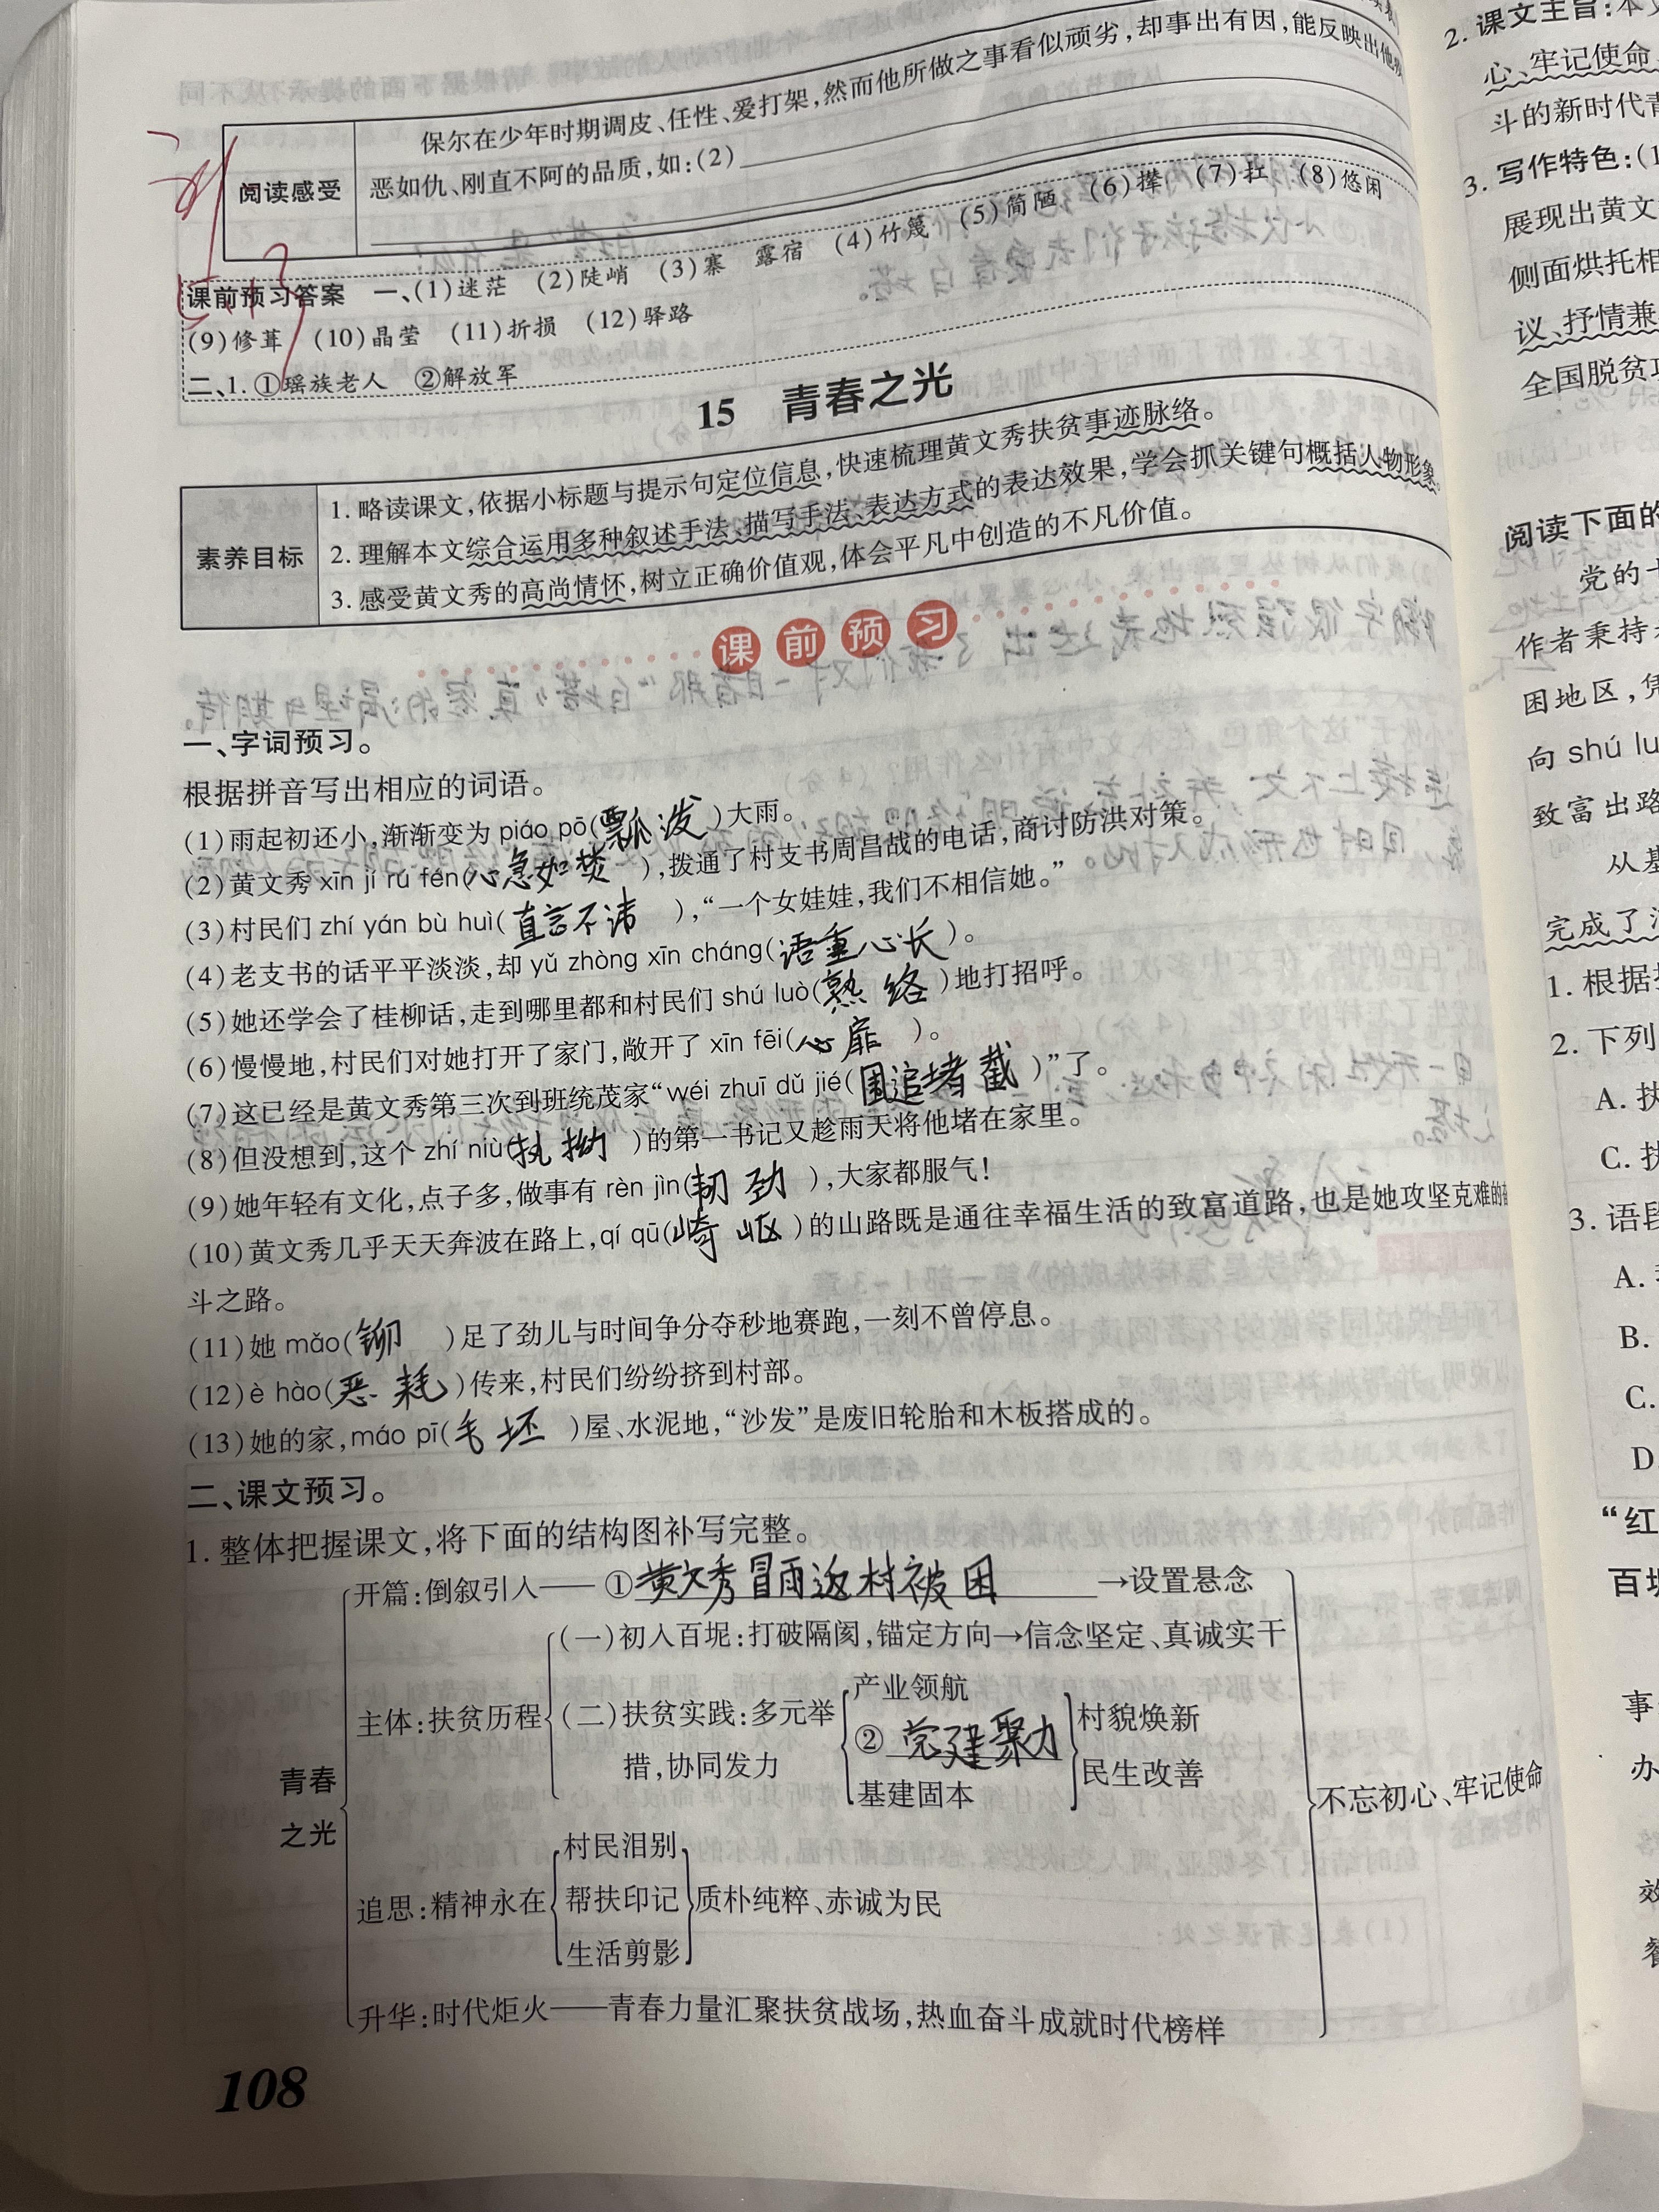 保尔在少年时期调皮、任性、爱打架,然而他所做之事看似顽劣,却事出有因,能反映出他
阅读感受
恶如仇、刚直不阿的品质,如:(2)
课前预习答案 一、(1)迷茫 (2)陡峭 (3)寨 露宿 (4)竹篾 (5)简陋 (6)撵 (7)扛 (8)悠闲
(9)修葺 (10)晶莹 (11)折损 (12)驿路
二、1. ①瑶族老人 ②解放军
15 青春之光
素养目标
1. 略读课文,依据小标题与提示句定位信息,快速梳理黄文秀扶贫事迹脉络。
2. 理解本文综合运用多种叙述手法、描写手法、表达方式的表达效果,学会抓关键句概括人物形象。
3. 感受黄文秀的高尚情怀,树立正确价值观,体会平凡中创造的不凡价值。
课前预习
一、字词预习。
根据拼音写出相应的词语。
(1)雨起初还小,渐渐变为 piáo pō(瓢泼)大雨。
(2)黄文秀 xīn jí rú fén(心急如焚),拨通了村支书周昌战的电话,商讨防洪对策。
(3)村民们 zhí yán bù huì(直言不讳),“一个女娃娃,我们不相信她。”
(4)老支书的话平平淡淡,却 yǔ zhòng xīn cháng(语重心长)。
(5)她还学会了桂柳话,走到哪里都和村民们 shú luò(熟络)地打招呼。
(6)慢慢地,村民们对她打开了家门,敞开了 xīn fēi(心扉)。
(7)这已经是黄文秀第三次到班统茂家“wéi zhuī dǔ jié(围追堵截)”了。
(8)但没想到,这个 zhí niù(执拗)的第一书记又趁雨天将他堵在家里。
(9)她年轻有文化,点子多,做事有 rèn jìn(韧劲),大家都服气!
(10)黄文秀几乎天天奔波在路上,qí qū(崎岖)的山路既是通往幸福生活的致富道路,也是她攻坚克难的奋
斗之路。
(11)她 mǎo(铆)足了劲儿与时间争分夺秒地赛跑,一刻不曾停息。
(12)è hào(恶耗)传来,村民们纷纷挤到村部。
(13)她的家,máo pī(毛坯)屋、水泥地,“沙发”是废旧轮胎和木板搭成的。
二、课文预习。
1. 整体把握课文,将下面的结构图补写完整。
青春之光
开篇:倒叙引人——①黄文秀冒雨返村被困→设置悬念
主体:扶贫历程
(一)初入百坭:打破隔阂,锚定方向→信念坚定、真诚实干
(二)扶贫实践:多元举措,协同发力
产业领航
②党建聚力
基建固本
村貌焕新
民生改善
追思:精神永在
村民泪别
帮扶印记
生活剪影
质朴纯粹、赤诚为民
升华:时代炬火——青春力量汇聚扶贫战场,热血奋斗成就时代榜样
不忘初心、牢记使命
108
2. 课文主旨:本文
心、牢记使命
斗的新时代青
3. 写作特色:(1
展现出黄文
侧面烘托相
议、抒情兼
全国脱贫攻
阅读下面的
党的十
作者秉持
困地区,凭
向 shú lu
致富出路
从基
完成了
1. 根据
2. 下列
A. 执
C. 执
3. 语段
A.
B.
C.
D.
“红
百坭
事
办
效